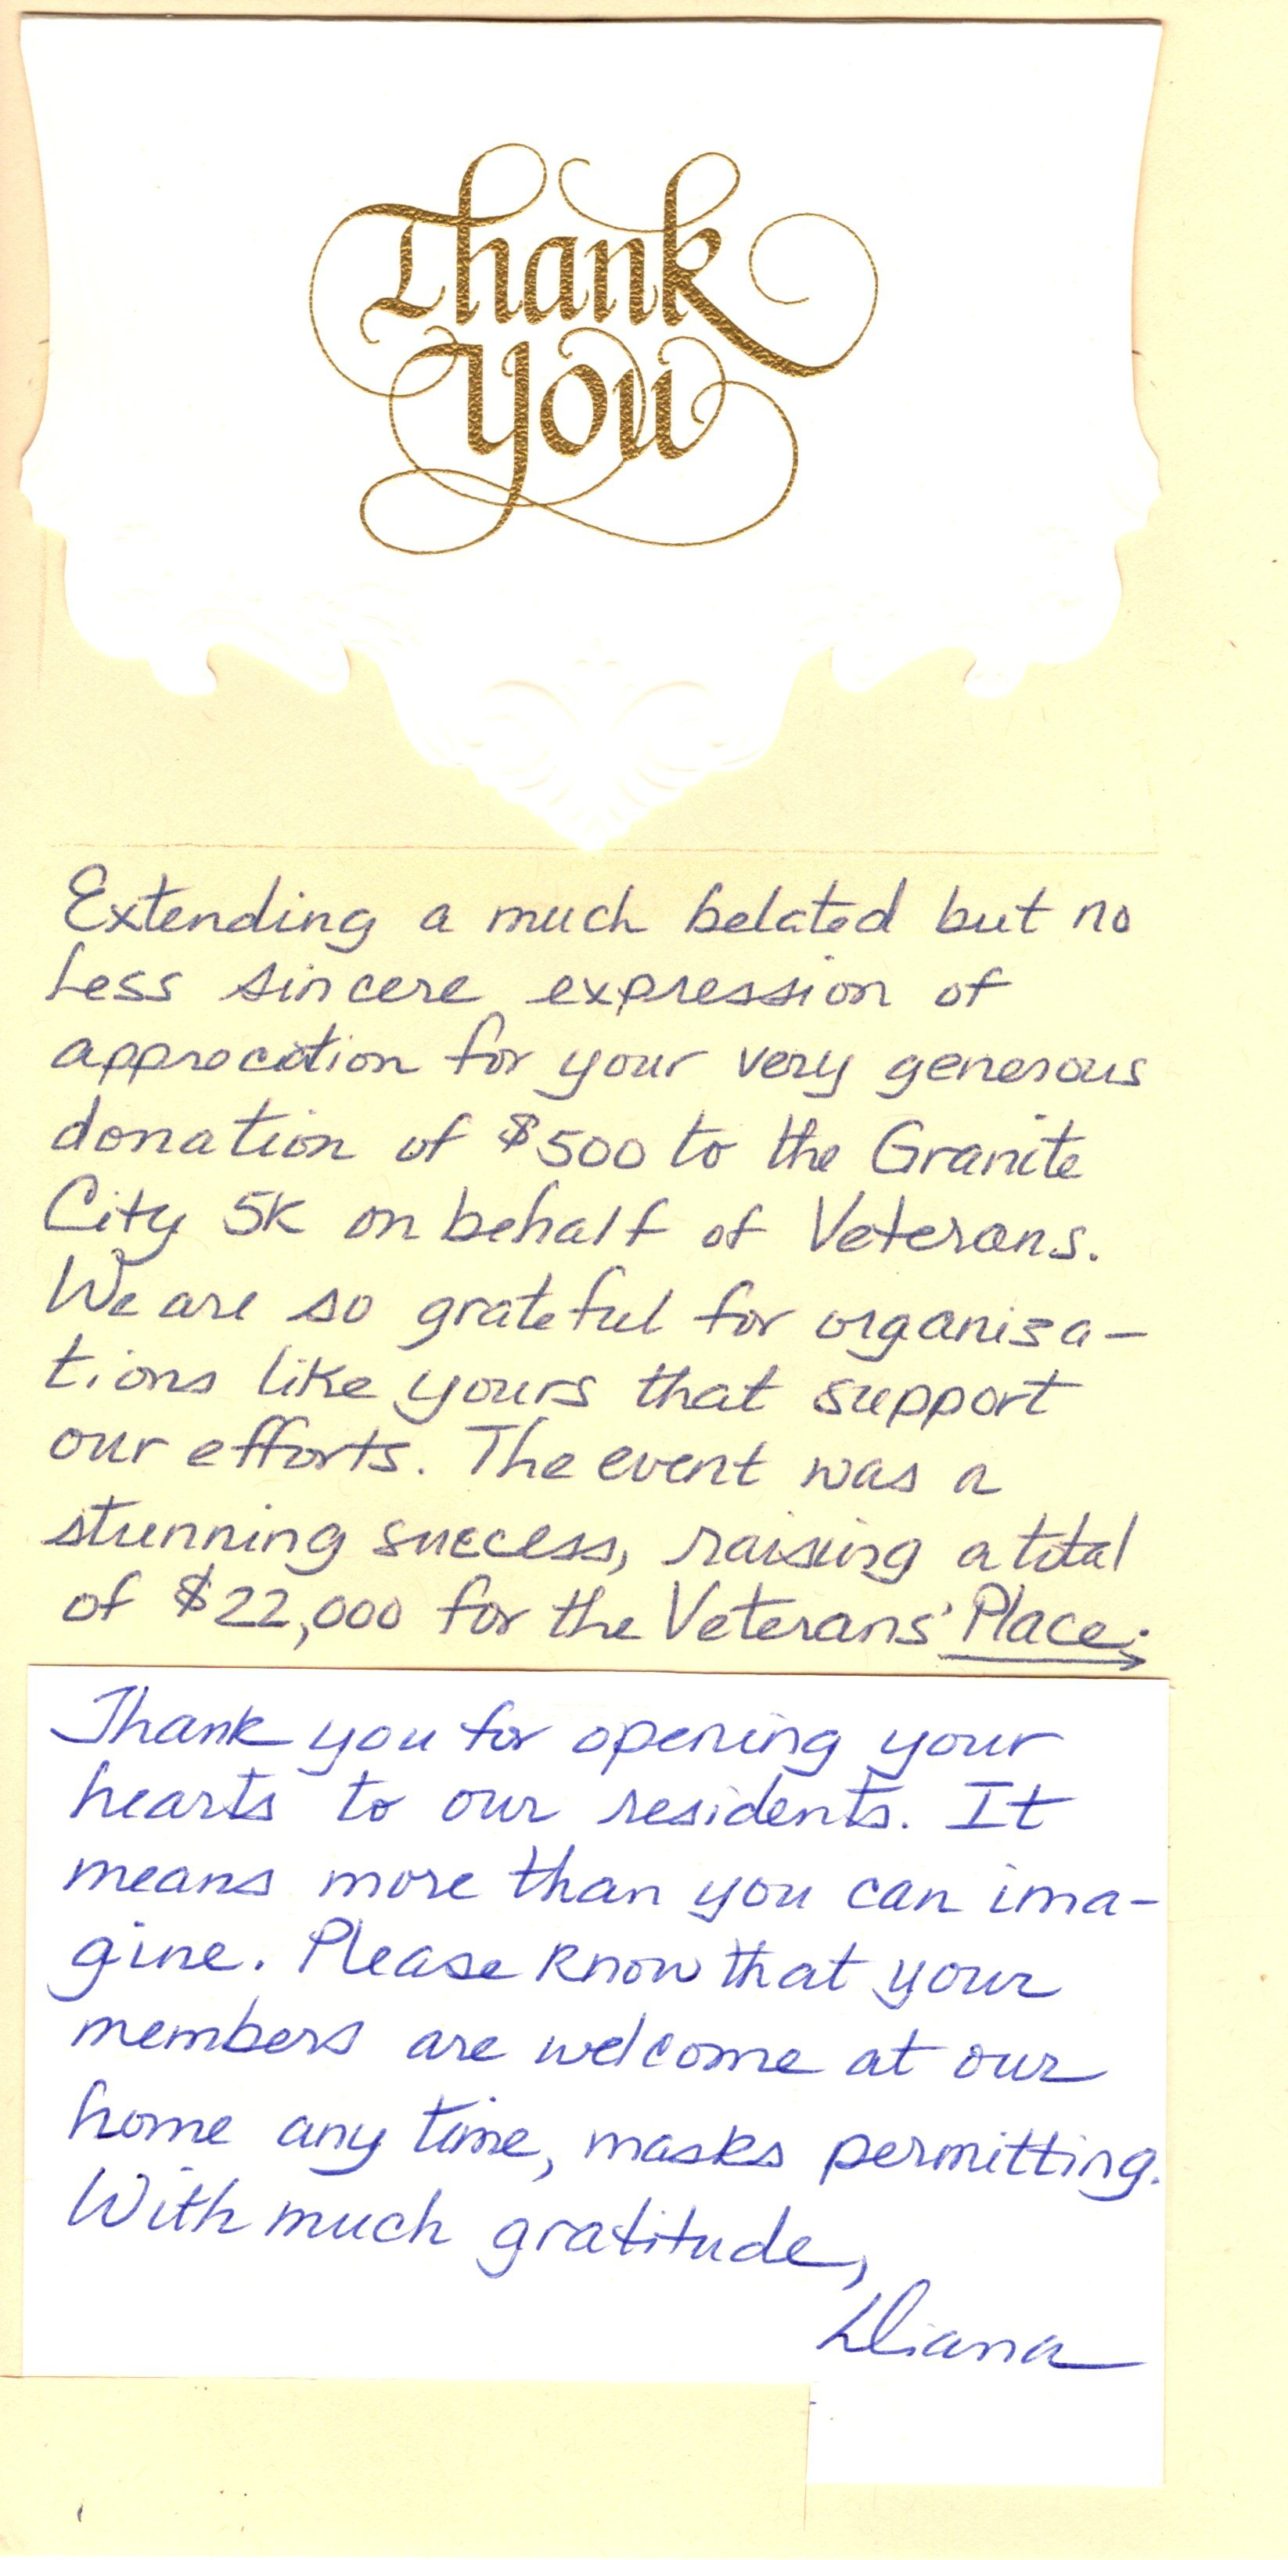 Thank
you
Extending a much belated but no
less sincere expression of
appreciation for your very generous
donation of $500 to the Granite
City 5K on behalf of Veterans.
We are so grateful for organiza-
tions like yours that support
our efforts. The event was a
stunning success, raising a total
of $22,000 for the Veterans' Place.
Thank you for opening your
hearts to our residents. It
means more than you can ima-
gine. Please know that your
members are welcome at our
home any time, masks permitting.
With much gratitude,
Diana